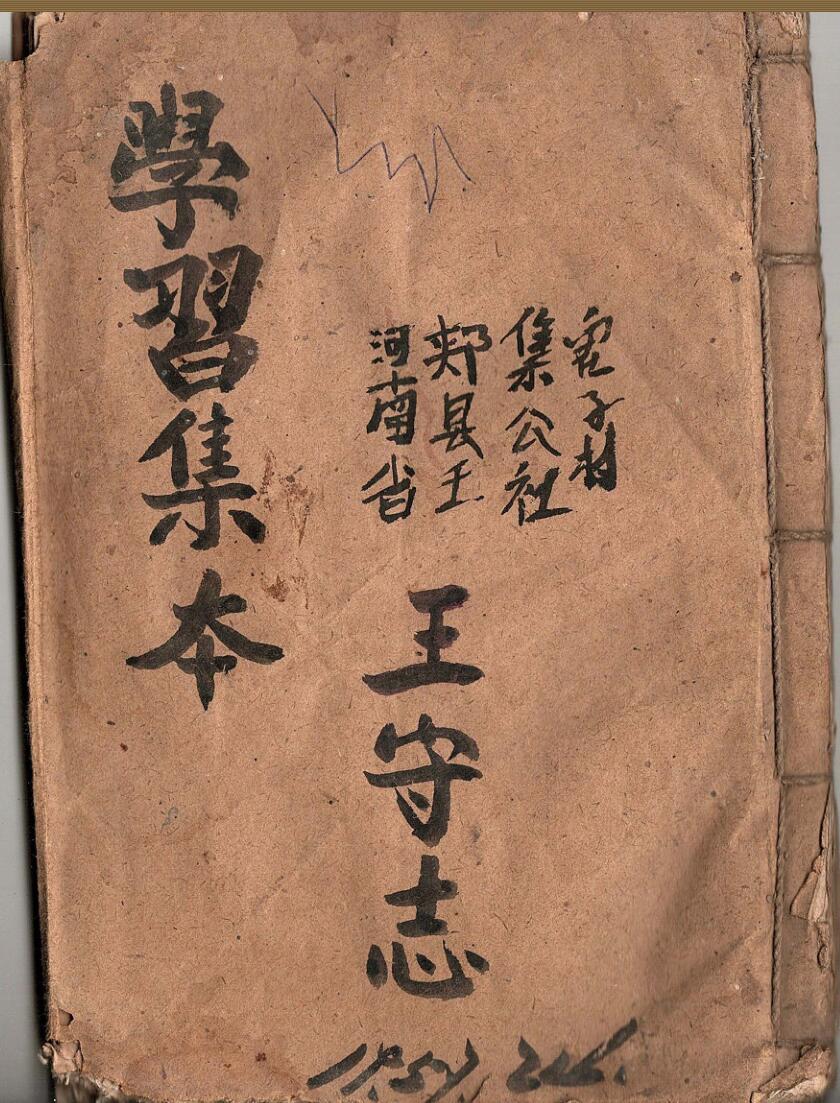 學習集本
河南省
郏县王
集公社
子村
王守志